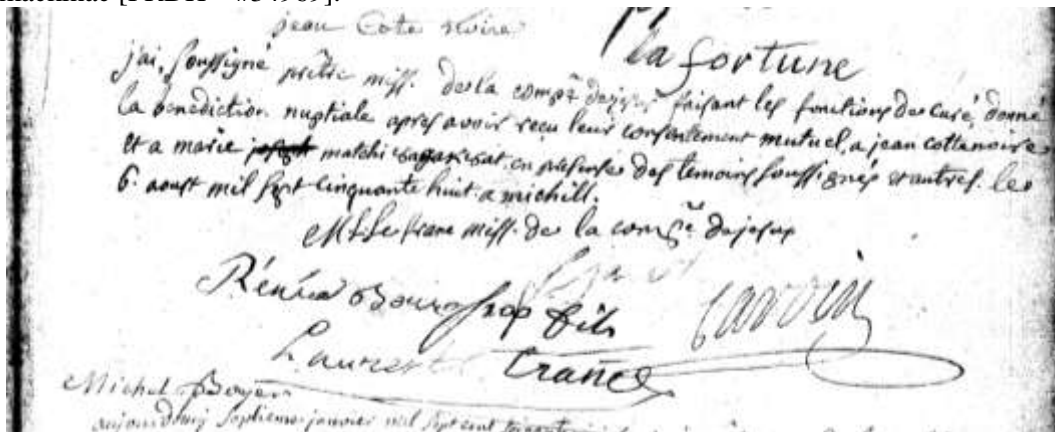 jean Cote Noire
la fortune
j'ai, soussigné prêtre miss. de la comp.e de jesus faisant les fonctions de curé, donné
la benediction nuptiale apres avoir recu leur consentement mutuel, a jean cottenoire
et a marie joseph matchi en presence des temoins soussignés et autres. le
6. aoust mil sept cinquante huit. a michill.
M L Le franc miss. de la comp.e de jesus
Réné Bourassa fils
Cardin
Laurent
Michel Boyer
aujourdhuy septieme janvier mil sept cent